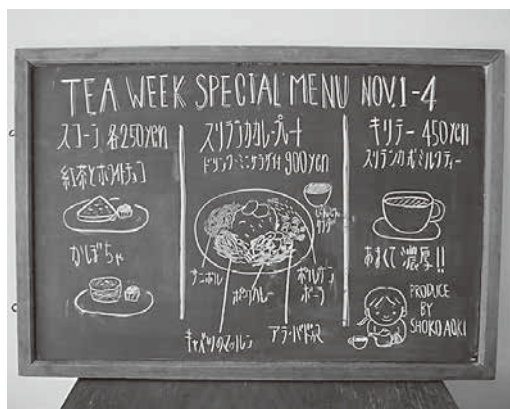 TEA WEEK SPECIAL MENU NOV.1-4
スコーン 各250yen
紅茶とホワイトチョコ
かぼちゃ
スリランカカレープレート
ドリンク・ミニサラダ付 900yen
サンボル
ポークカレー
キャベツのマッルン
アラ・バドゥマ
キリテー 450yen
スリランカ式ミルクティー
あまくて濃厚!!
PRODUCE
BY
SHOKO AOKI